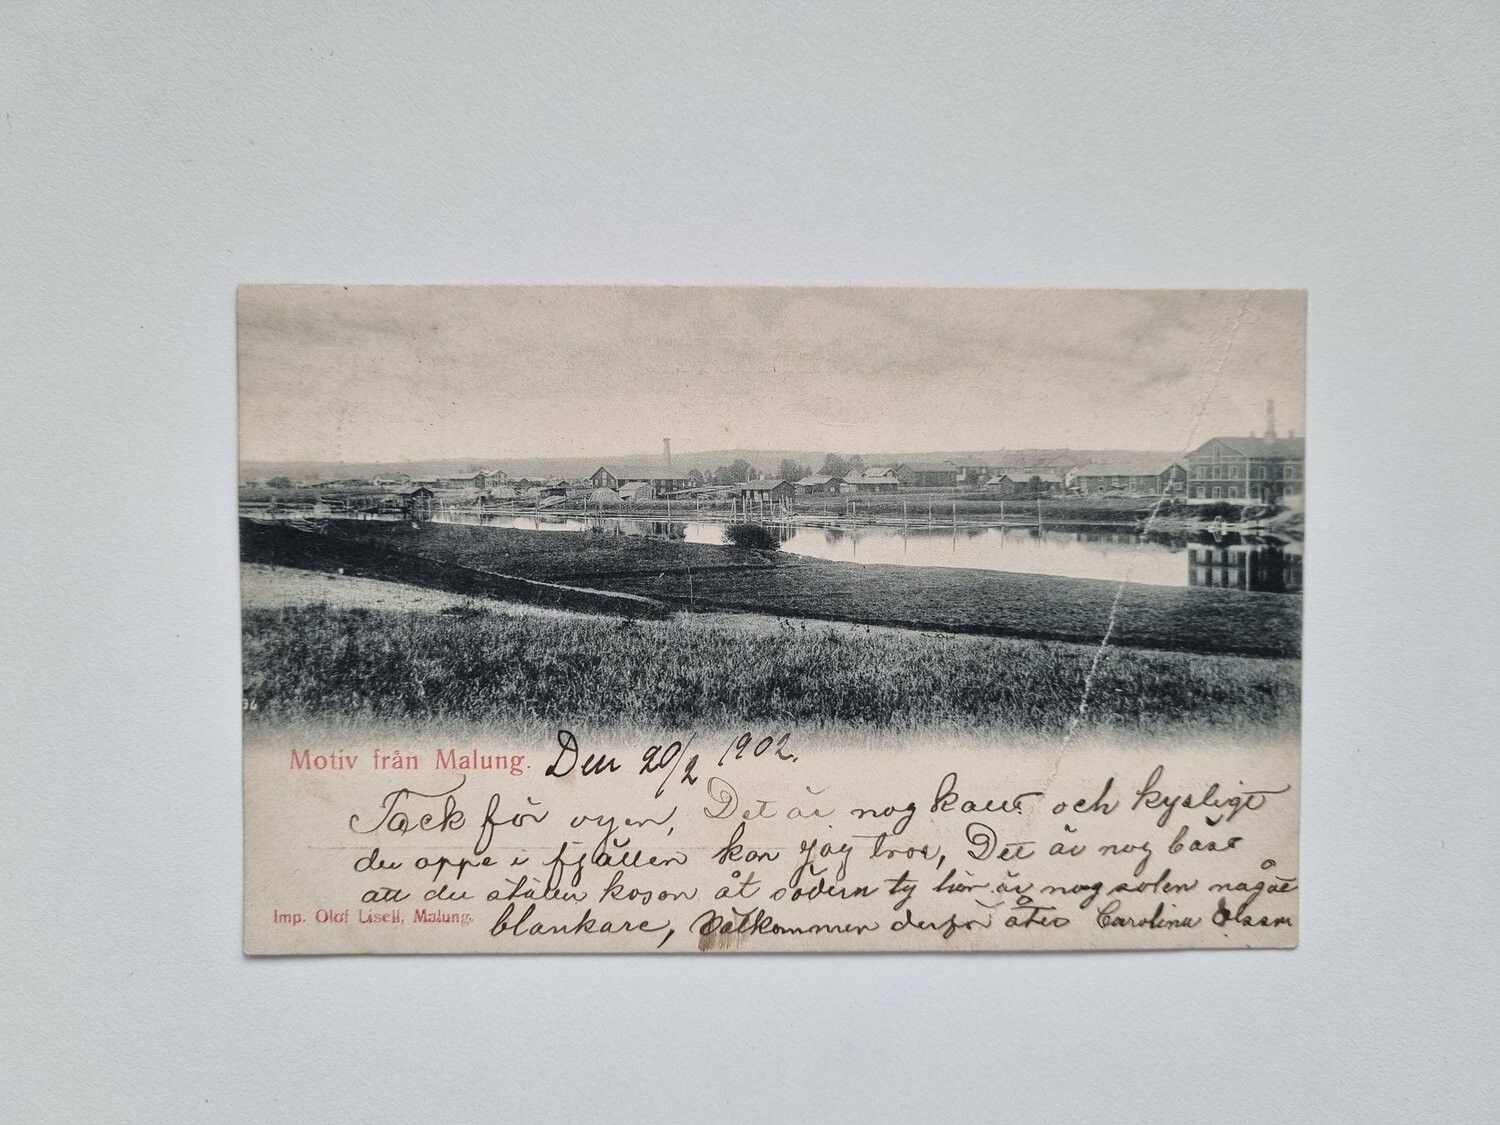 Motiv från Malung. Den 20/2 1902.
Tack för vyen, Det är nog kallt och kusligt
der oppe i fjällen kan jag tro, Det är nog bäst
att du ställer kosan åt södern ty här är nog solen något
Imp. Olof Lisell, Malung.
blankare, Välkommen derför åter Carolina Olsson
34